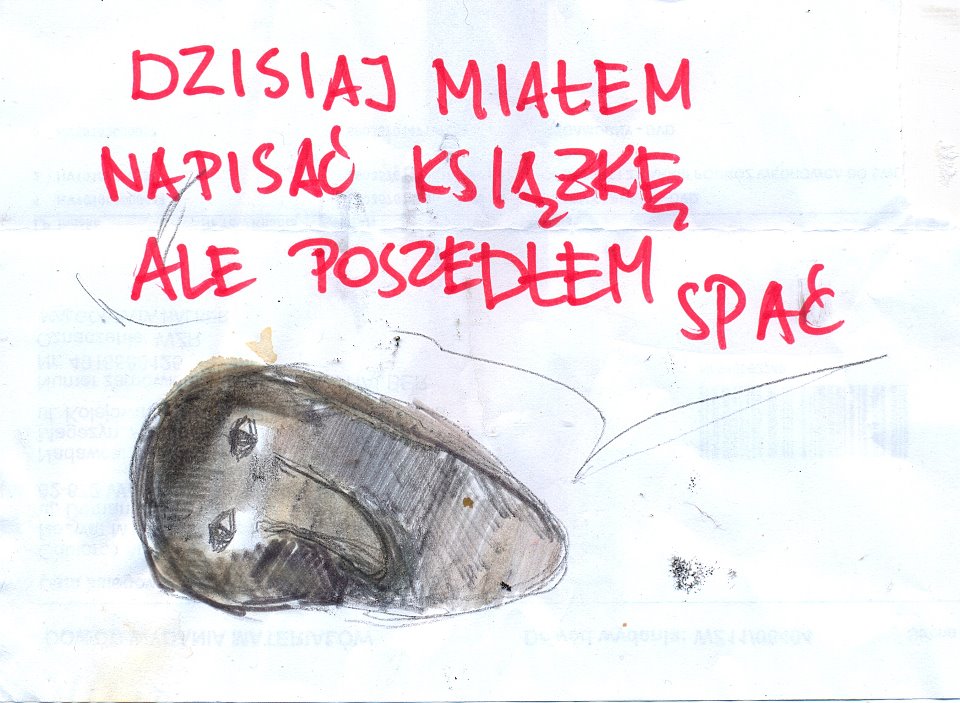 DZISIAJ MIAŁEM
NAPISAĆ KSIĄŻKĘ
ALE POSZEDŁEM
SPAĆ